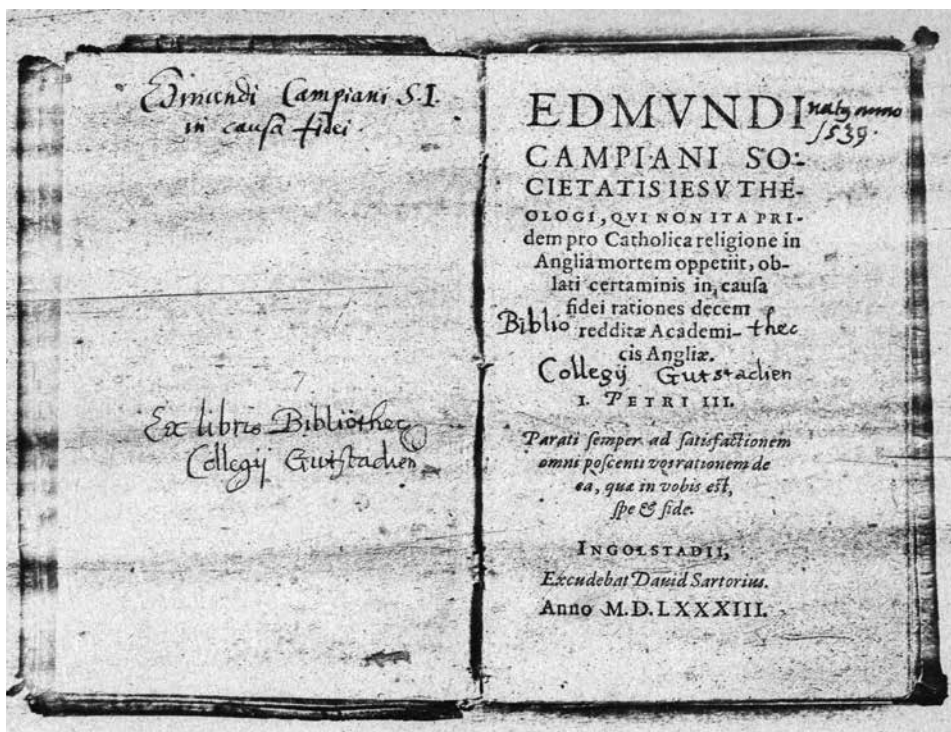 Edmundi Campiani S.I.
in causa fidei.
Ex libris Bibliothec
Collegij Gutstadien
EDMVNDI
natg anno
1539.
CAMPIANI SO-
CIETATIS IESV THE-
OLOGI, QVI NON ITA PRI-
dem pro Catholica religione in
Anglia mortem oppetiit, ob-
lati certaminis in, cauſa
fidei rationes decem
Biblio redditæ Academi- thec
cis Angliæ.
Collegij Gutstadien
I. PETRI III.
Parati ſemper ad ſatisfactionem
omni poſcenti vos rationem de
ea, quæ in vobis eſt,
ſpe & fide.
INGOLSTADII,
Excudebat Dauid Sartorius.
Anno M.D.LXXXIII.